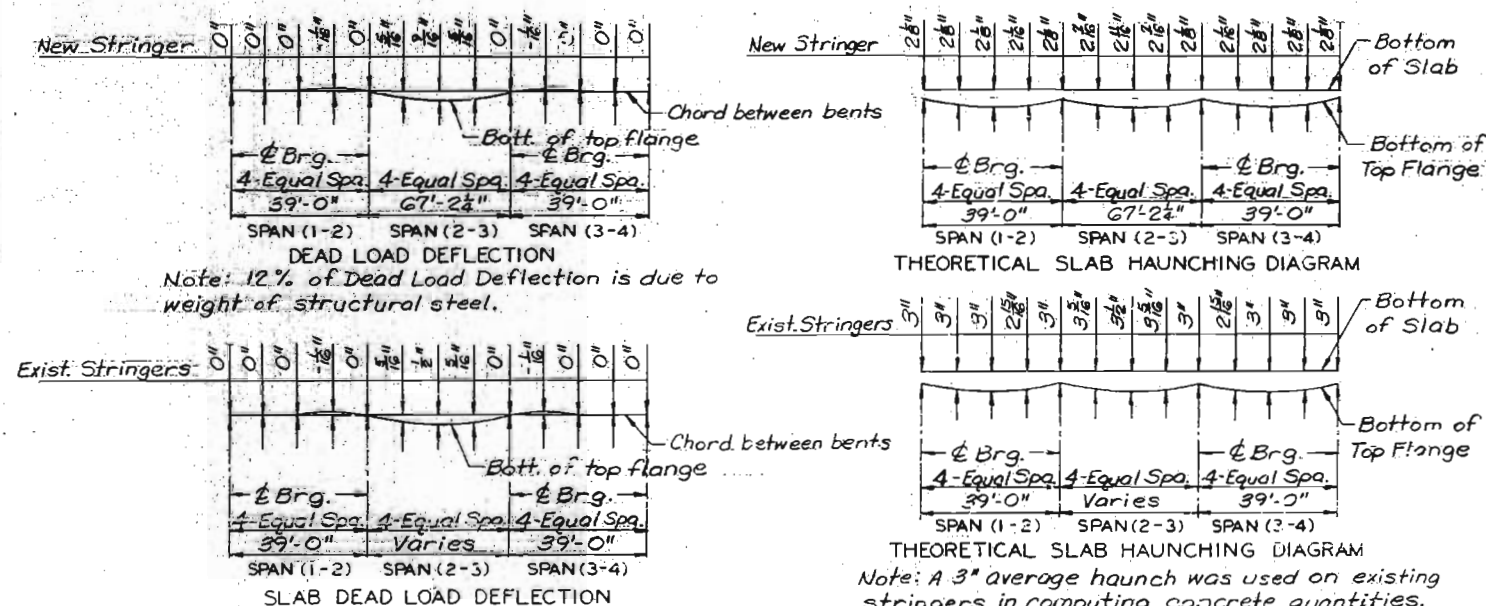 New Stringer 0" 0" 0" -1/16" 0" 5/16" 9/16" 5/16" 0" -1/16" 0" 0"
Chord between bents
Bott. of top flange
℄ Brg. ℄ Brg.
4-Equal Spa. 4-Equal Spa. 4-Equal Spa.
39'-0" 67'-2¼" 39'-0"
SPAN (1-2) SPAN (2-3) SPAN (3-4)
DEAD LOAD DEFLECTION
Note: 12% of Dead Load Deflection is due to
weight of structural steel.
Exist. Stringers 0" 0" 0" -1/16" 0" 5/16" ½" 5/16" 0" -1/16" 0" 0" 0"
Chord between bents
Bott. of top flange
℄ Brg. ℄ Brg.
4-Equal Spa. 4-Equal Spa. 4-Equal Spa.
39'-0" Varies 39'-0"
SPAN (1-2) SPAN (2-3) SPAN (3-4)
SLAB DEAD LOAD DEFLECTION
New Stringer 2⅛" 2⅛" 2⅛" 2 1/16" 2⅛" 2 7/16" 2 11/16" 2 7/16" 2⅛" 2 1/16" 2⅛" 2⅛" 2⅛"
Bottom
of Slab
Bottom of
Top Flange
℄ Brg. ℄ Brg.
4-Equal Spa. 4-Equal Spa. 4-Equal Spa.
39'-0" 67'-2¼" 39'-0"
SPAN (1-2) SPAN (2-3) SPAN (3-4)
THEORETICAL SLAB HAUNCHING DIAGRAM
Exist. Stringers 3" 3" 3" 2 15/16" 3" 3 5/16" 3½" 3 5/16" 3" 2 15/16" 3" 3" 3"
Bottom
of Slab
Bottom of
Top Flange
℄ Brg. ℄ Brg.
4-Equal Spa. 4-Equal Spa. 4-Equal Spa.
39'-0" Varies 39'-0"
SPAN (1-2) SPAN (2-3) SPAN (3-4)
THEORETICAL SLAB HAUNCHING DIAGRAM
Note: A 3" average haunch was used on existing
stringers in computing concrete quantities.